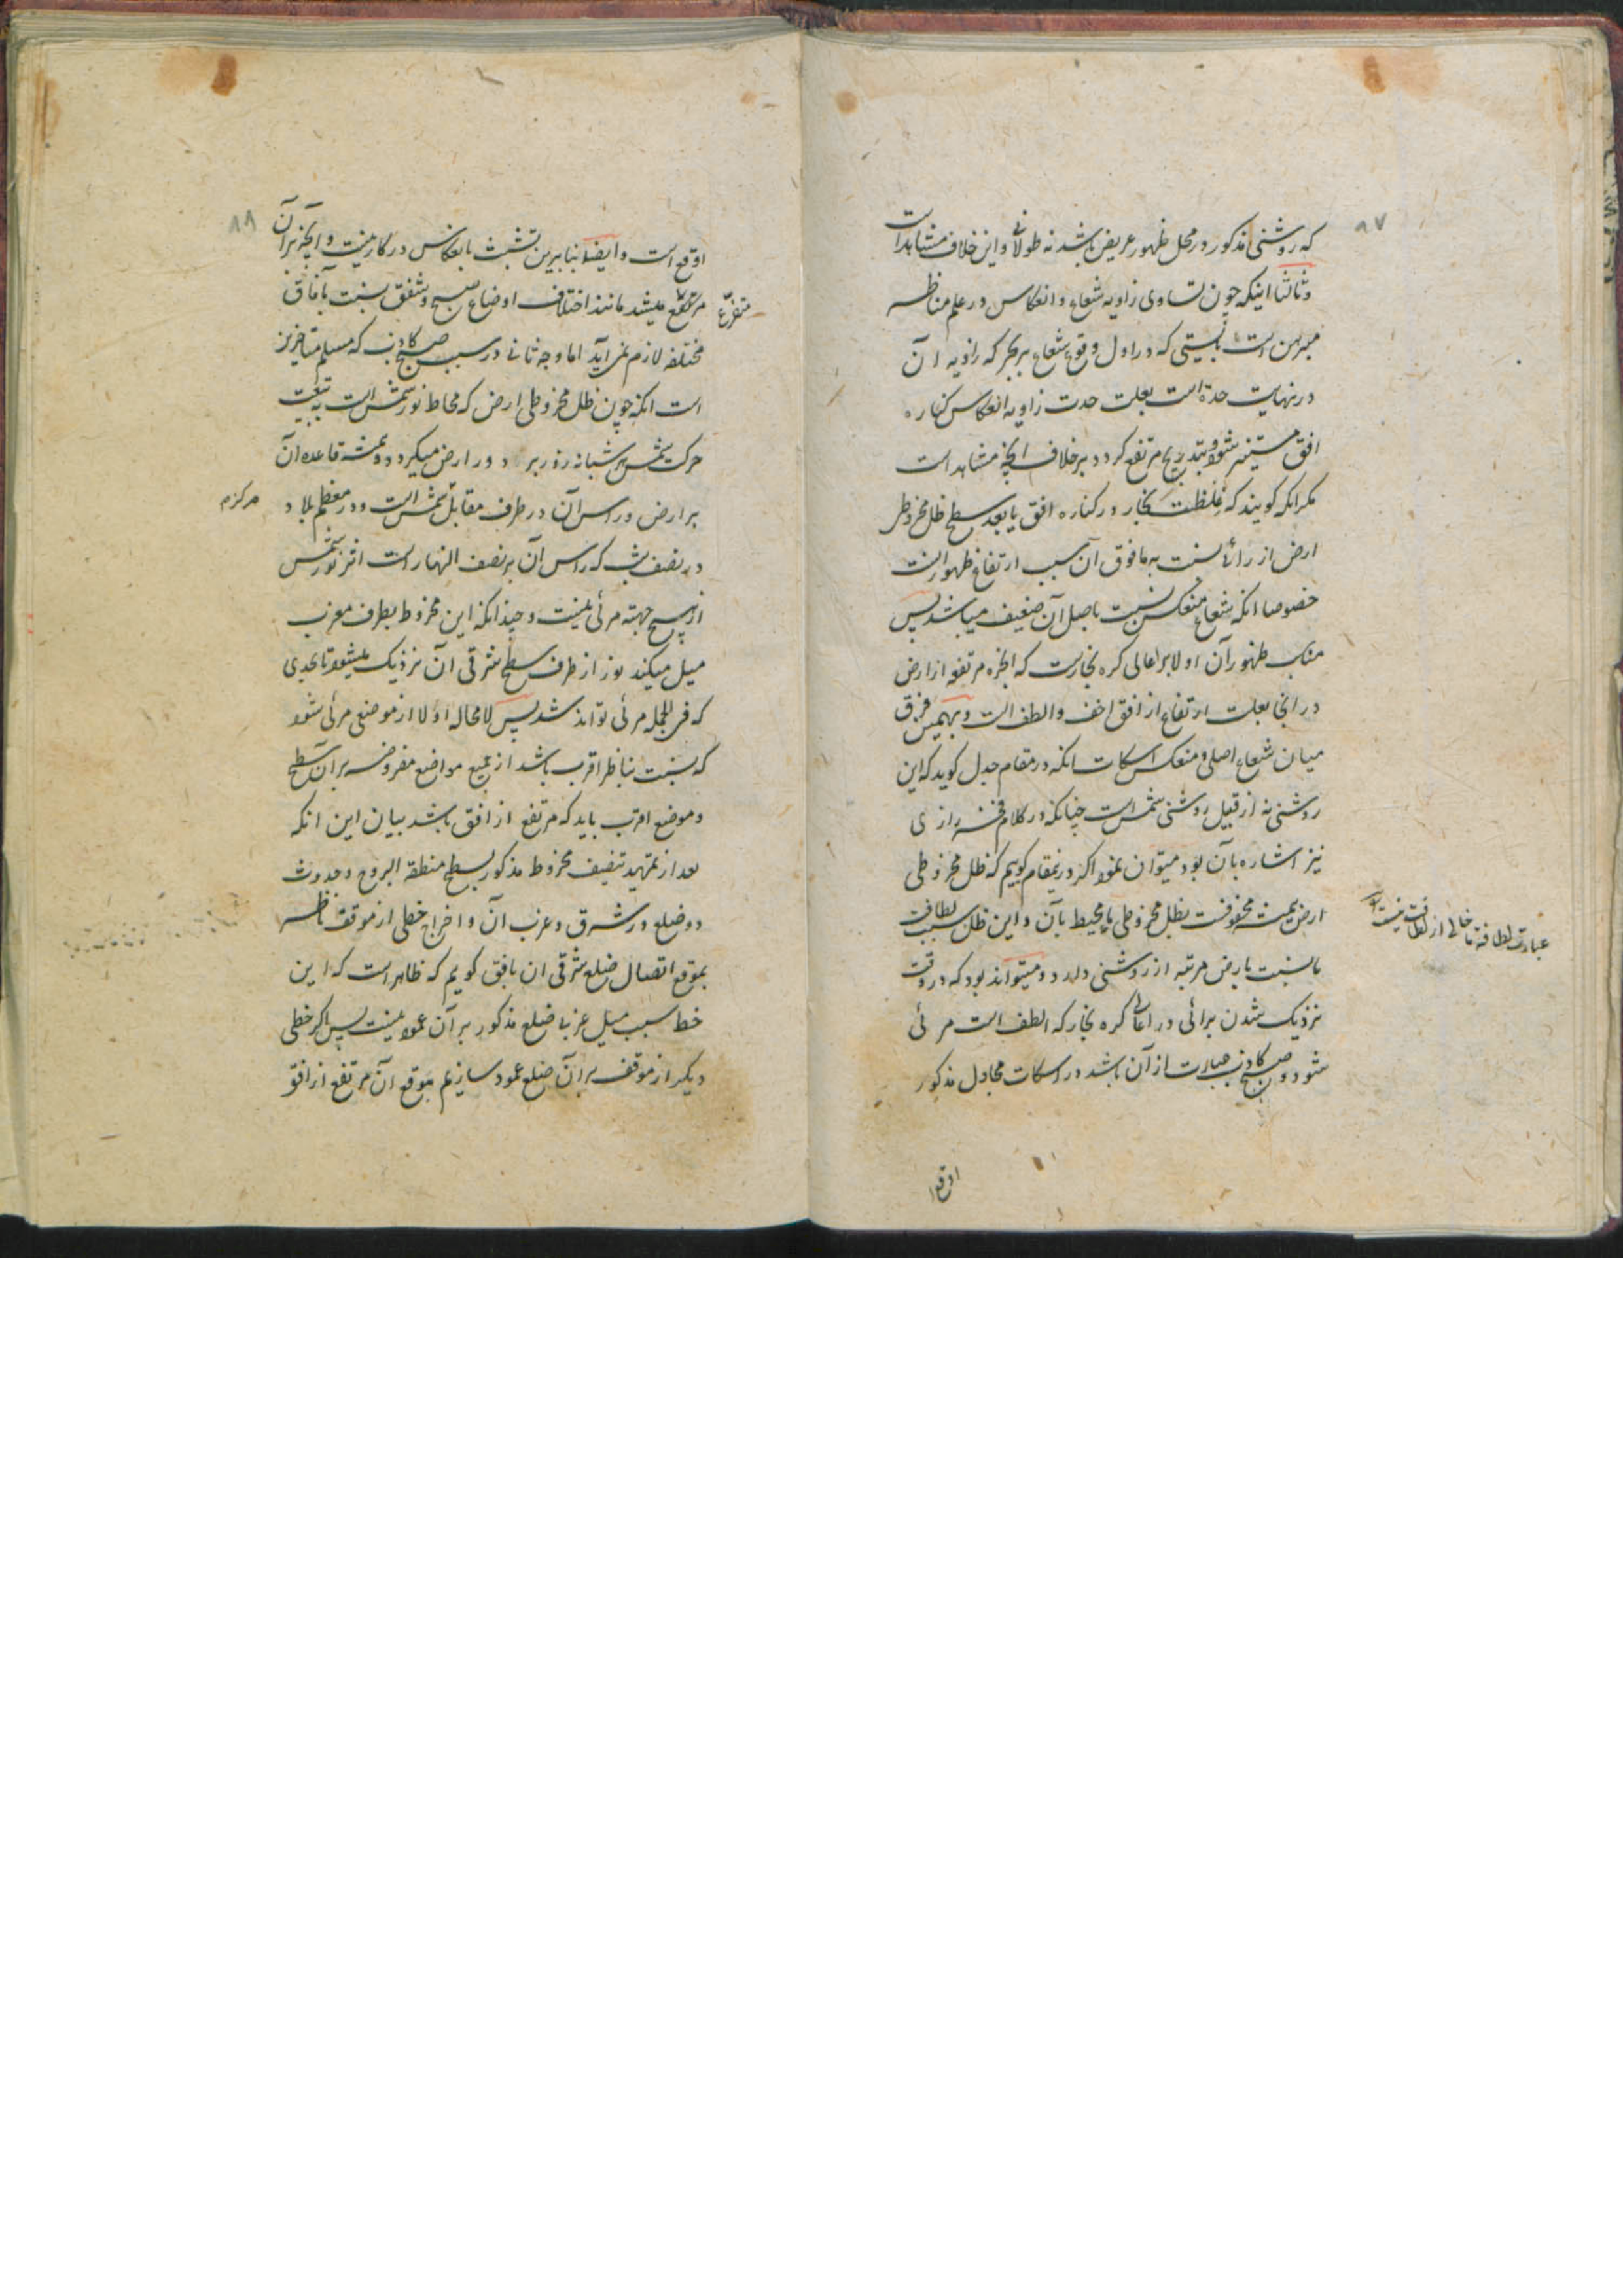 ۸۷
که روشنی مذکور در محل ظهور عریض باشد نه طولانی و این خلاف مشاهد است
و ثالثا اینکه چون تساوی زاویه شعاع و انعکاس در علم مناظر
مبرهن است بایستی که در اول وقوع شعاع بر بحر که زاویه ان
در نهایت حدة است بعلت حدت زاویه انعکاس کناره
افق مستنیر شود و بتدریج مرتفع کردد بر خلاف انچه مشاهد است
مکر انکه کویند که غلظت بخار در کناره افق یا بعد سطح ظل مخروط
ارض از رائ نسبت به مافوق آن سبب ارتفاع ظهور است
خصوصا انکه شعاع منعکس نسبت باصل آن ضعیف میباشد پس
مناسب ظهور آن اولا بر اعالی کره بخارست که ابخره مرتفعه از ارض
در انجا بعلت ارتفاع از افق اخف و الطف است و بهمین فرق
میان شعاع اصلی و منعکس اسکات انکه در مقام جدل کوید که این
روشنی نه از قبیل روشنی شمس است چنانکه در کلام فخر رازی
نیز اشاره بآن بود میتوان نمود اکر درینمقام کوییم که ظل مخروطی
ارض همیشه محفوفست بظل مخروطی محیط بآن و این ظل بسبب لطافت
یا نسبت بارض مرتبه از روشنی دارد و میتواند بود که در وقت
نزدیک شدن برائی در اعالی کره بخار که الطف است مرئی
شود و صبح کاذب عبارت از آن باشد در اسکات مجادل مذکور
عبارت لطافة ما خالی از لطافت نیست
اوقع
۸۸
اوقع است و ایضا بنا برین تشبث بانعکاس در کار نیست و انچه بر آن
متفرع میشد مانند اختلاف اوضاع صبح و شفق نسبت بآفاق
متفرع
مختلفه لازم نمی آید اما وجه ثانی در سبب صبح کاذب که مسلم متاخرین
است انکه چون ظل مخروطی ارض که محاط نور شمس است به تبعیت
حرکت شمس شبانه روز بر دور ارض میکردد و همیشه قاعده آن
بر ارض و راس آن در طرف مقابل شمس است و در معظم بلاد
مرکزم
در نصف شب که راس آن بر نصف النهار است اثر نور شمس
از هیچ جهته مرئی نیست و چندانکه این مخروط بطرف مغرب
میل میکند نور از طرف سطح شرقی ان نزدیک میشود تا بحدی
که فی الجمله مرئی تواند شد پس لا محاله اولا از موضعی مرئی شود
که نسبت بناظر اقرب باشد از جمیع مواضع مفروضه بر آن سطح
و موضع اقرب باید که مرتفع از افق باشد بیان این انکه
بعد از تمهید تنصیف مخروط مذکور بسطح منطقة البروج و حدوث
دو ضلع در شرق و غرب آن و اخراج خطی از موقف ناظر
بموقع اتصال ضلع شرقی ان بافق کوییم که ظاهر است که این
خط بسبب میل غربی ضلع مذکور بر آن عمود نیست پس اکر خطی
دیکر از موقف بر آن ضلع عمود سازیم موقع آن مرتفع از افق